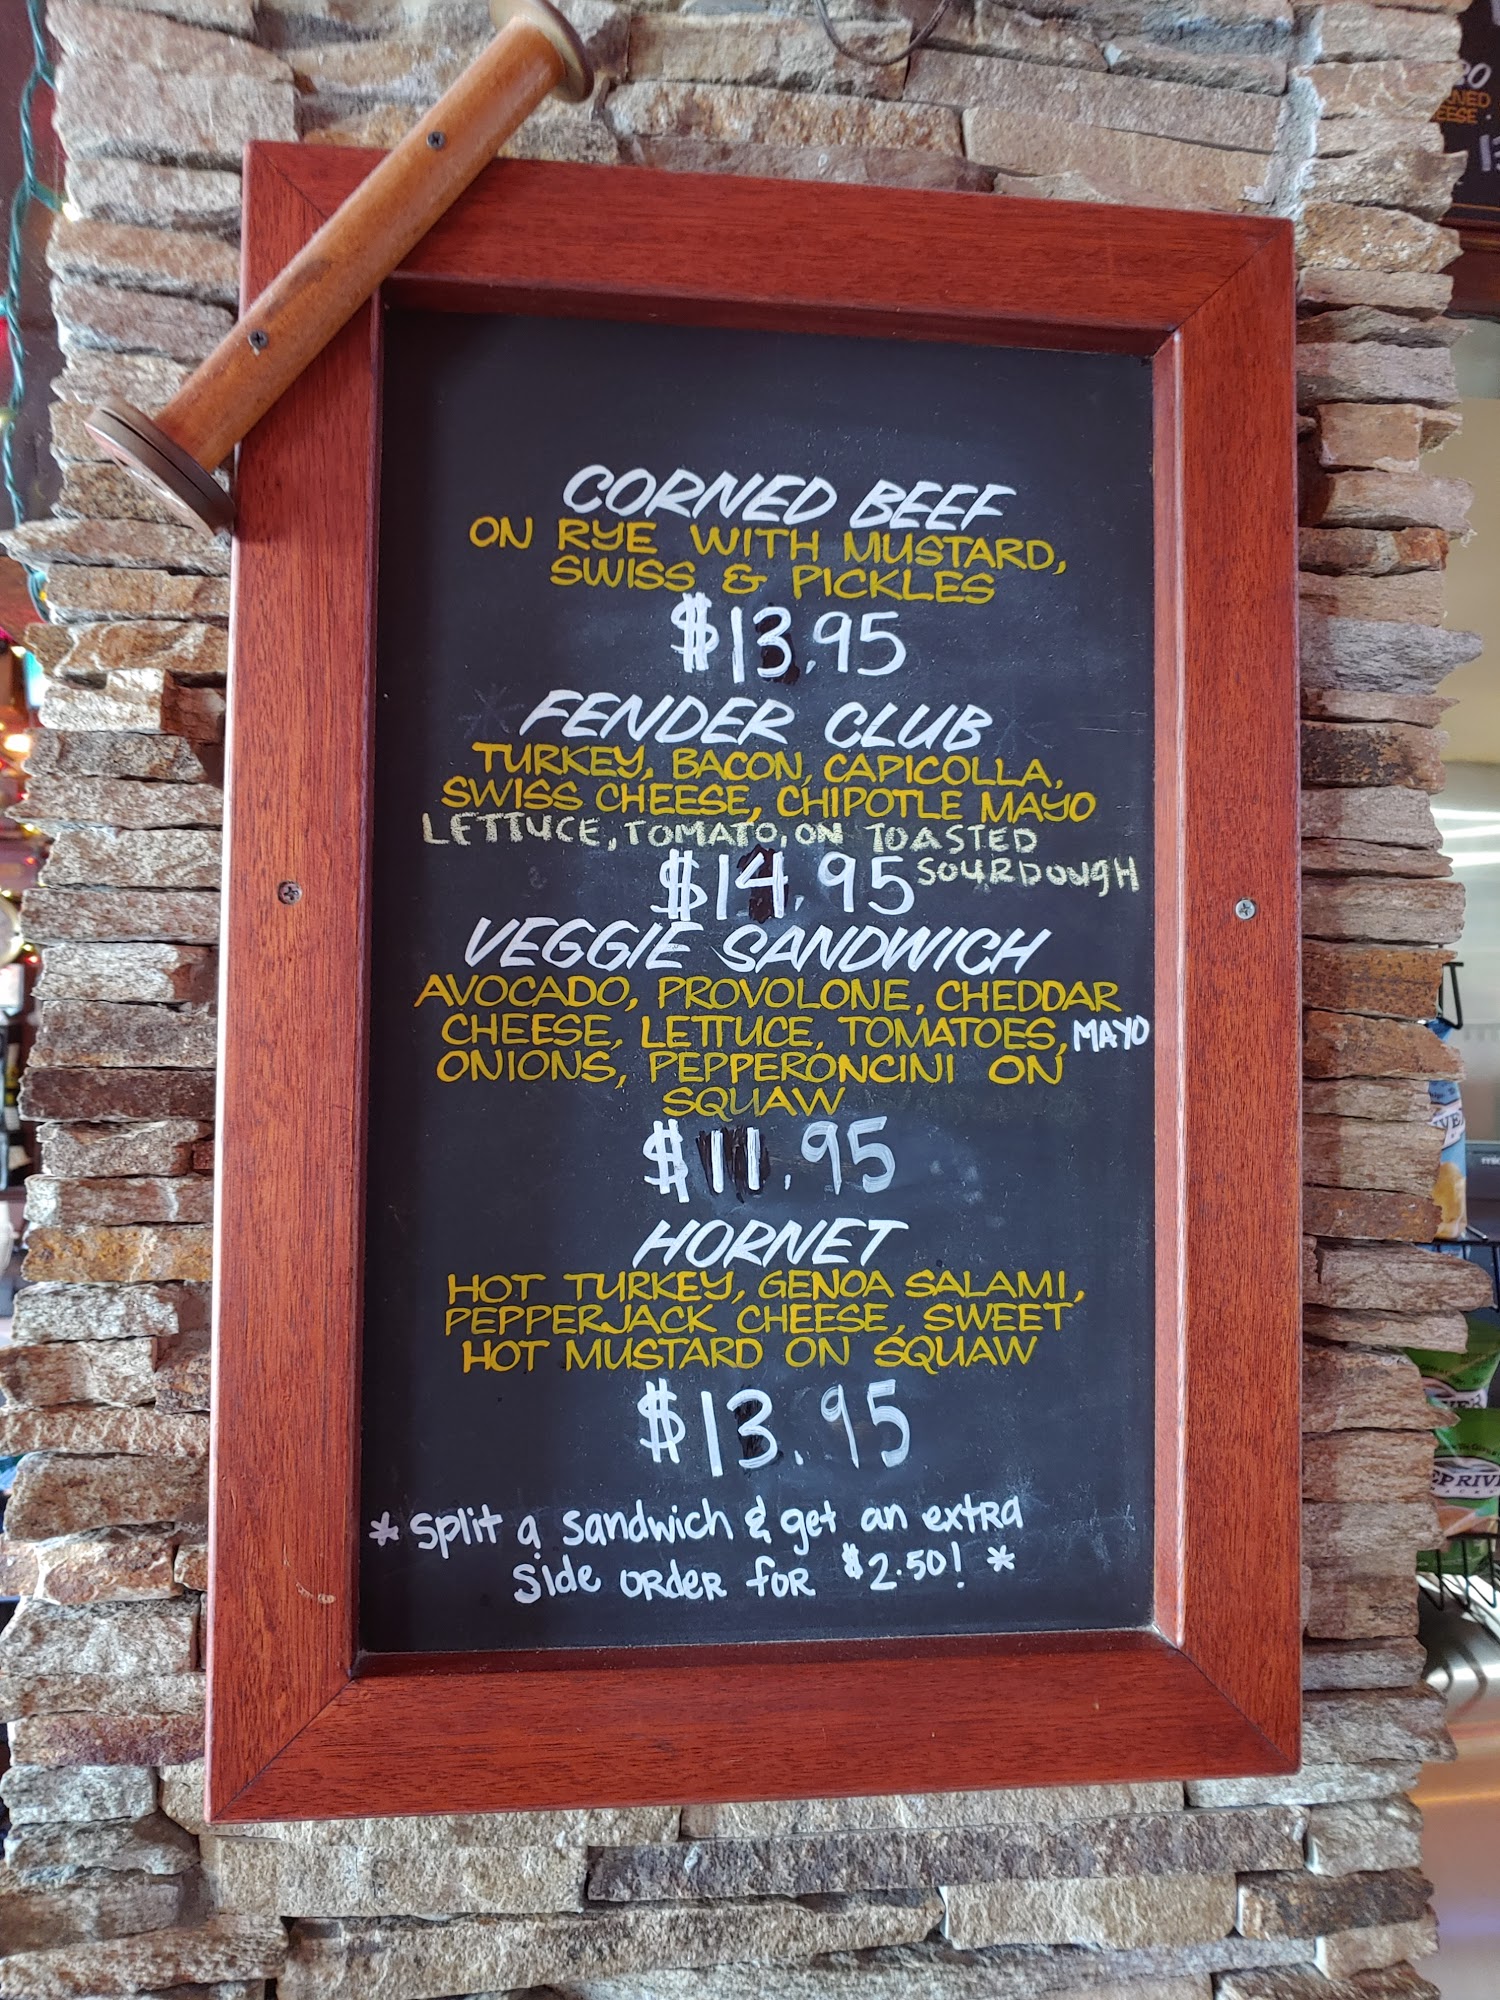 CORNED BEEF
ON RYE WITH MUSTARD,
SWISS & PICKLES
$13.95
FENDER CLUB
TURKEY, BACON, CAPICOLLA,
SWISS CHEESE, CHIPOTLE MAYO
LETTUCE, TOMATO, ON TOASTED
SOURDOUGH
$14.95
VEGGIE SANDWICH
AVOCADO, PROVOLONE, CHEDDAR
CHEESE, LETTUCE, TOMATOES, MAYO
ONIONS, PEPPERONCINI ON
SQUAW
$11.95
HORNET
HOT TURKEY, GENOA SALAMI,
PEPPERJACK CHEESE, SWEET
HOT MUSTARD ON SQUAW
$13.95
* Split a sandwich & get an extra
side order for $2.50! *